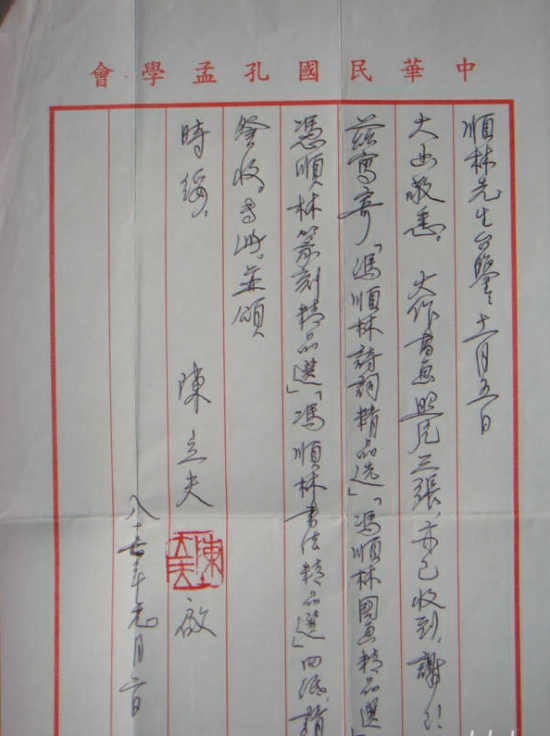 中華民國孔孟學會
順林先生台鑒:十一月五日
大函敬悉。大作書畫照片三張,亦已收到,謝謝!
茲寄奉「馮順林詩詞精品选」「馮順林國畫精品選」
馮順林篆刻精品選」「馮順林書法精品選」四紙,請
詧收。專此,並頌
時綏。
陳立夫 啟
陳立夫
八十七年元月二日